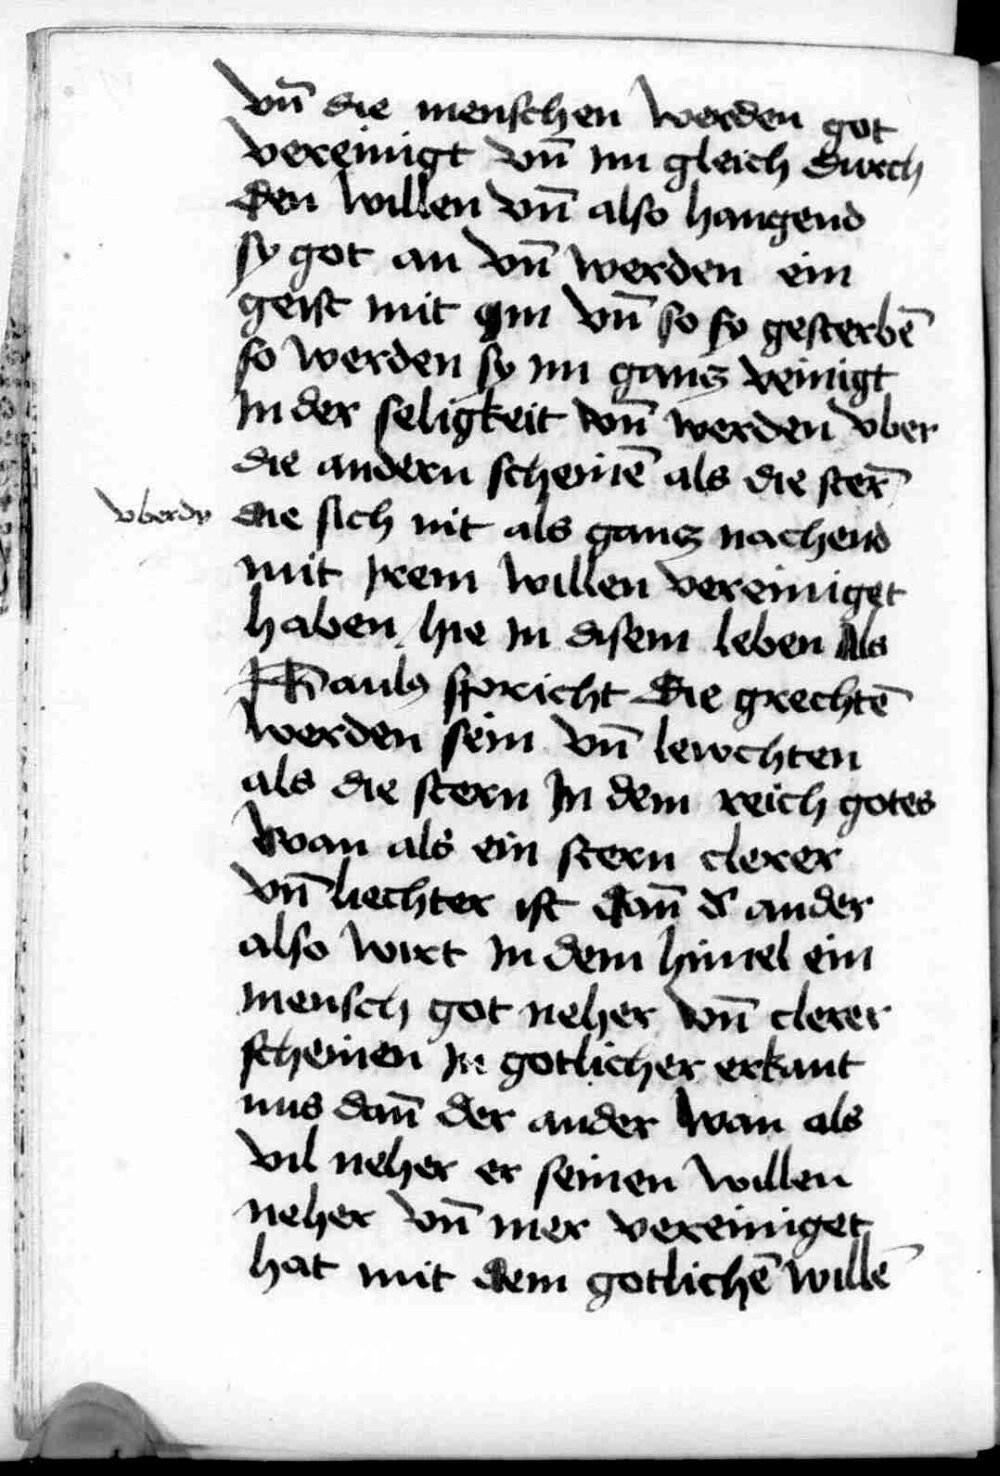 vn̄ die menschen werden got
vereinigt vn̄ im gleich durch
den willen vn̄ also hangend
sy got an vn̄ werden ein
geist mit ym vn̄ so sy gesterbē
so werden sy im gancz veinigt
In der seligkeit vn̄ werden vber
die andern scheinē als die ster̄
vber dy
die sich nit als gancz nachend
mit irem willen vereiniget
haben hie In disem leben Als
paulus spricht Die grechtē
werden sein vn̄ lewchten
als die stern In dem reich gotes
wan als ein stern clerer
vn̄ liechter ist dan̄ d' ander
also wirt In dem himel ein
mensch got neher vn̄ clerer
scheinen In gotlicher erkant
nus dan̄ der ander wan als
vil neher er seinen willen
neher vn̄ mer vereiniget
hat mit dem gotlichē willē